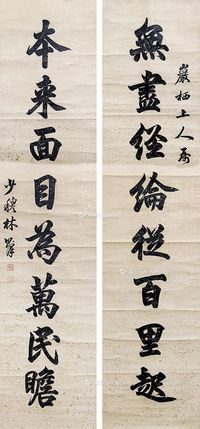 無盡經綸從百里起
巖栖上人屬
本来面目為萬民瞻
少穆林